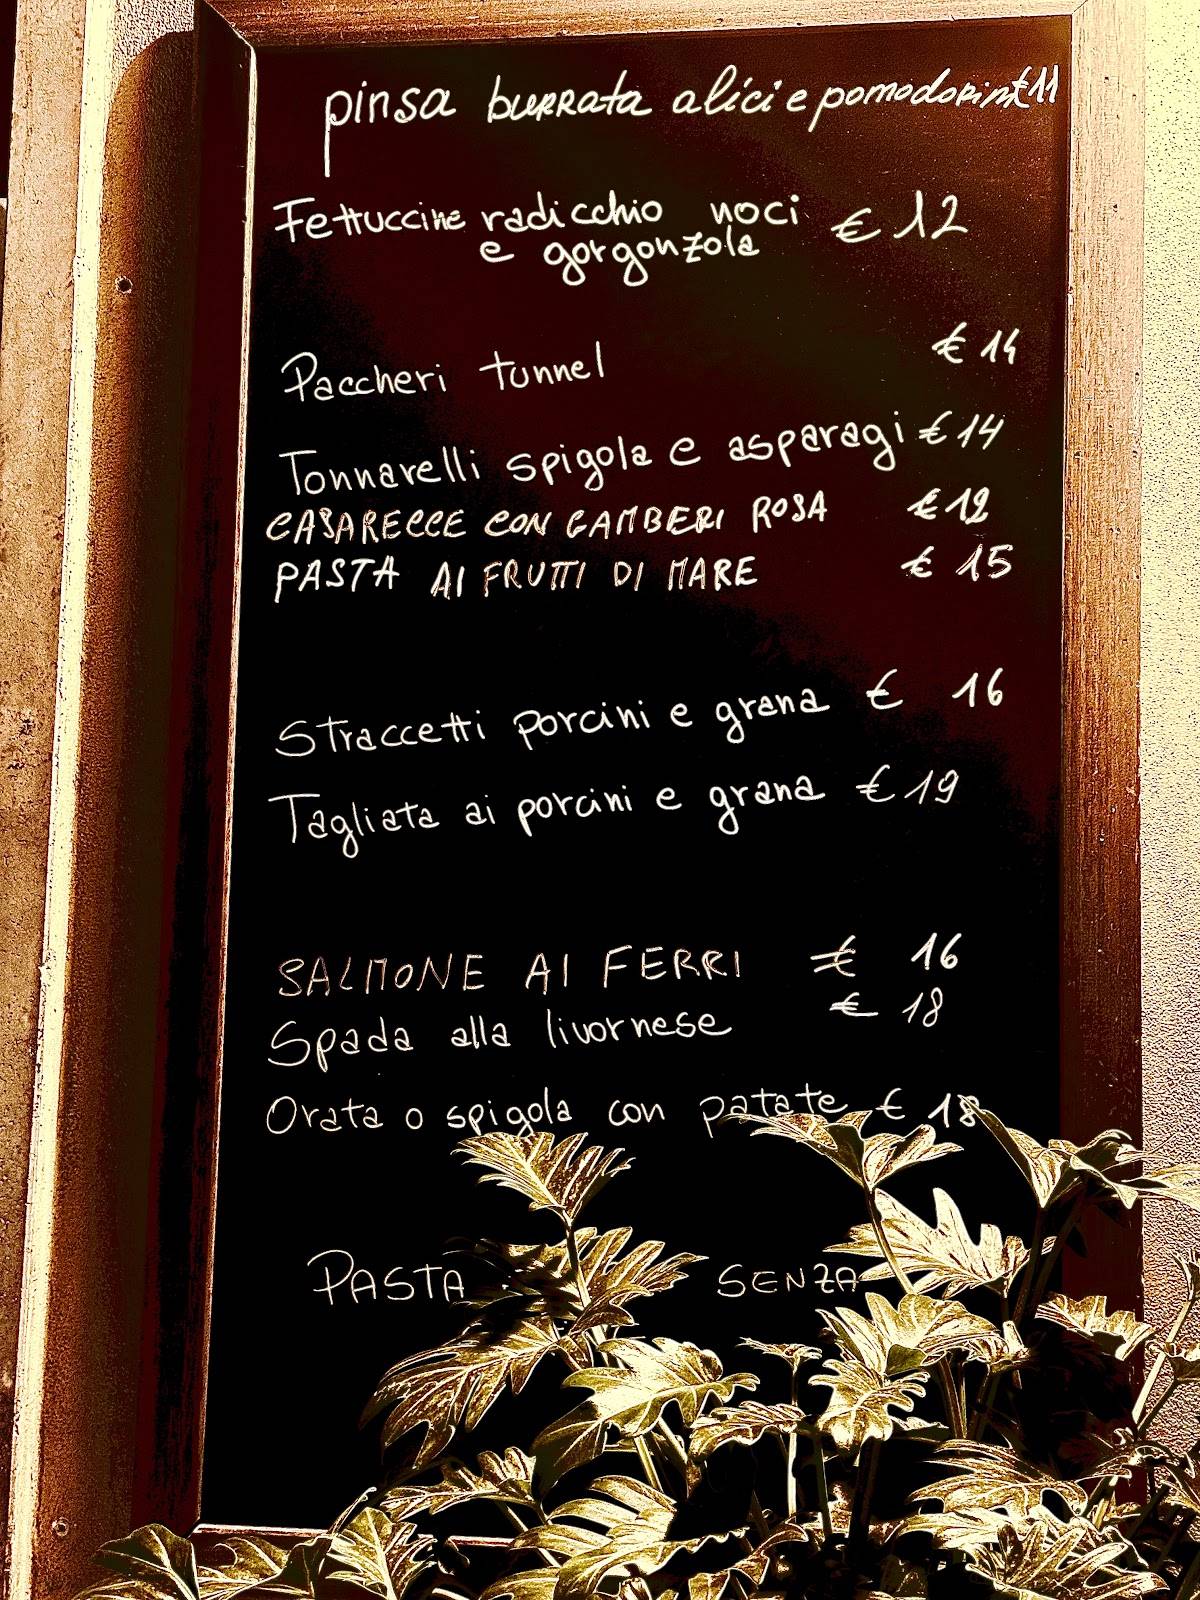 pinsa burrata alici e pomodorini €11
Fettuccine radicchio noci € 12
e gorgonzola
Paccheri tunnel € 14
Tonnarelli spigola e asparagi € 14
CASARECCE CON GAMBERI ROSA € 12
PASTA AI FRUTTI DI MARE € 15
Straccetti porcini e grana € 16
Tagliata ai porcini e grana € 19
SALMONE AI FERRI € 16
Spada alla livornese € 18
Orata o spigola con patate € 18
PASTA SENZA